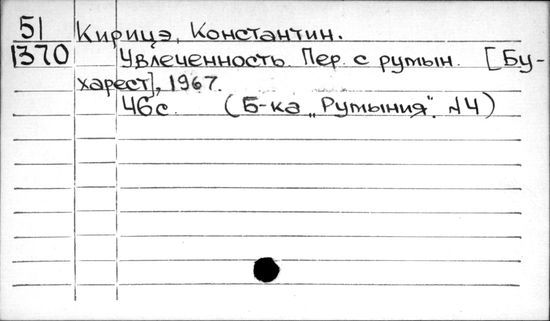 51
1370
Кирицэ, Константин.
Увлеченность. Пер. с румын. [Бу-
харест], 1967.
46с. (Б-ка „Румыния". №4)